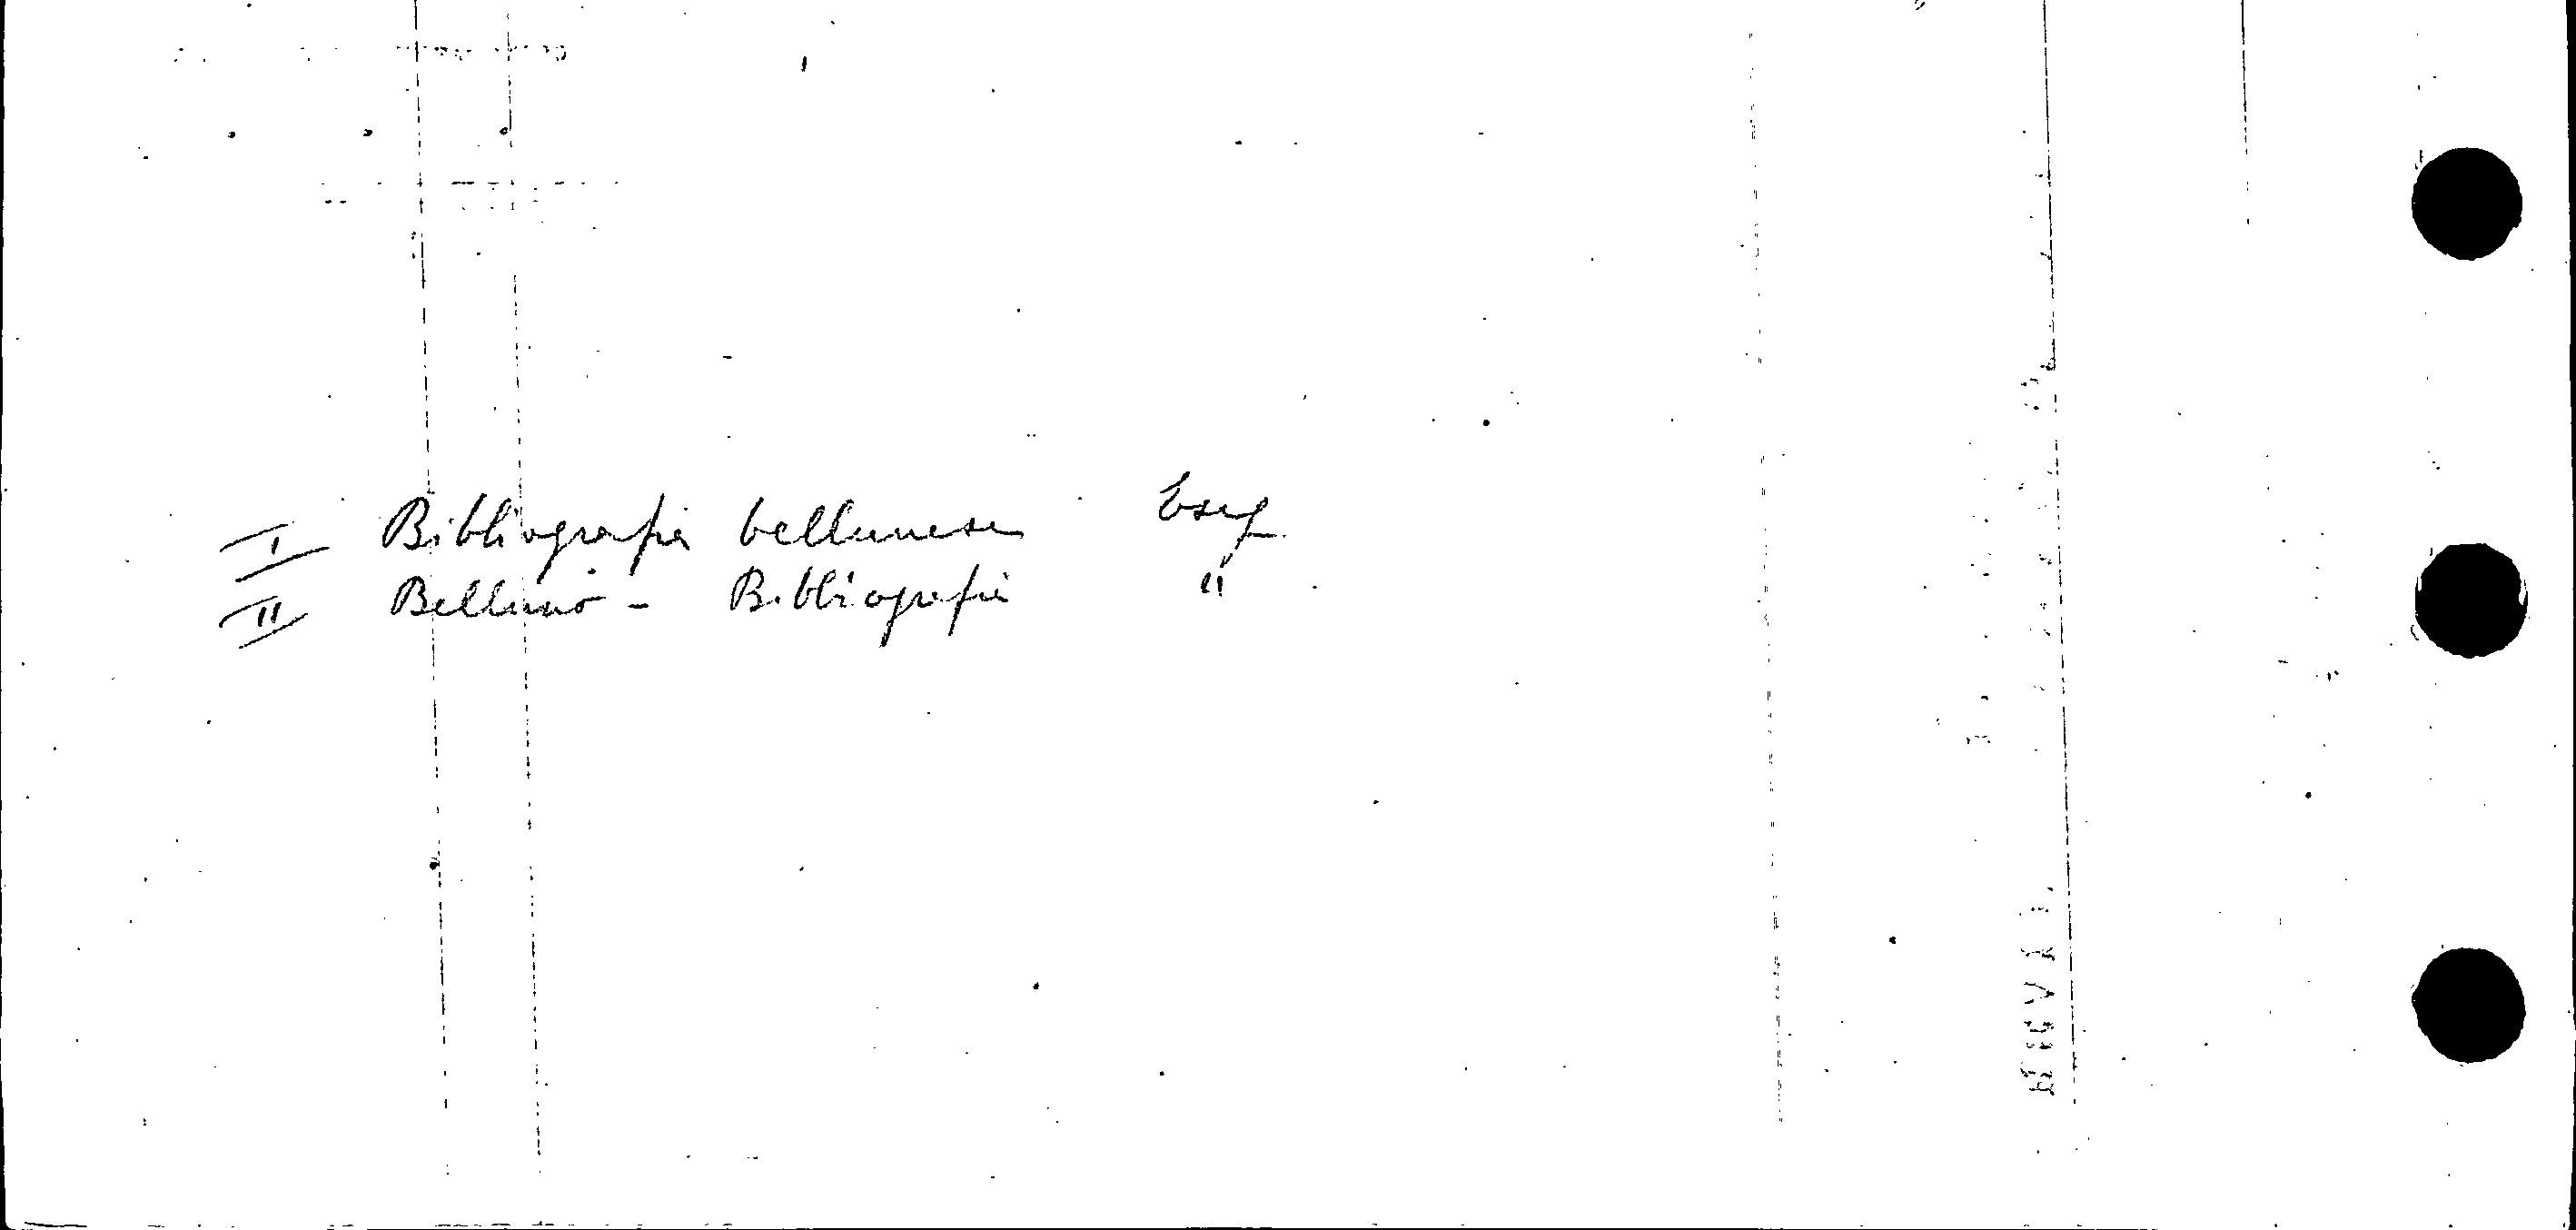 I Bibliografia bellunese Eseg
II Belluno - Bibliografia "